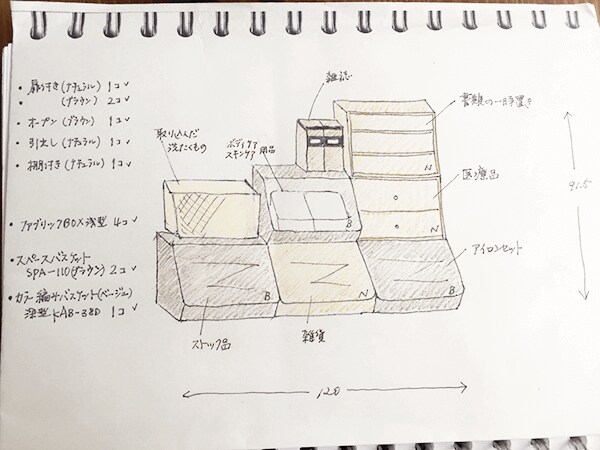 ・扉付き(ナチュラル) 1コ✓
・ (ブラウン) 2コ✓
・オープン(ブラウン) 1コ✓
・引出し(ナチュラル) 1コ✓
・棚付き(ナチュラル) 1コ✓
・ファブリックBOX浅型 4コ✓
・スペースバスケット
SPA-110(ブラウン) 2コ✓
・カラー編みバスケット(ベージュ)
深型 KAB-38D 1コ✓
雑誌
書類の一時置き
取り込んだ
洗たくもの
ボディケア
スキンケア 用品
医療品
N
B
N
アイロンセット
B
N
B
ストック品
雑貨
91.5
120